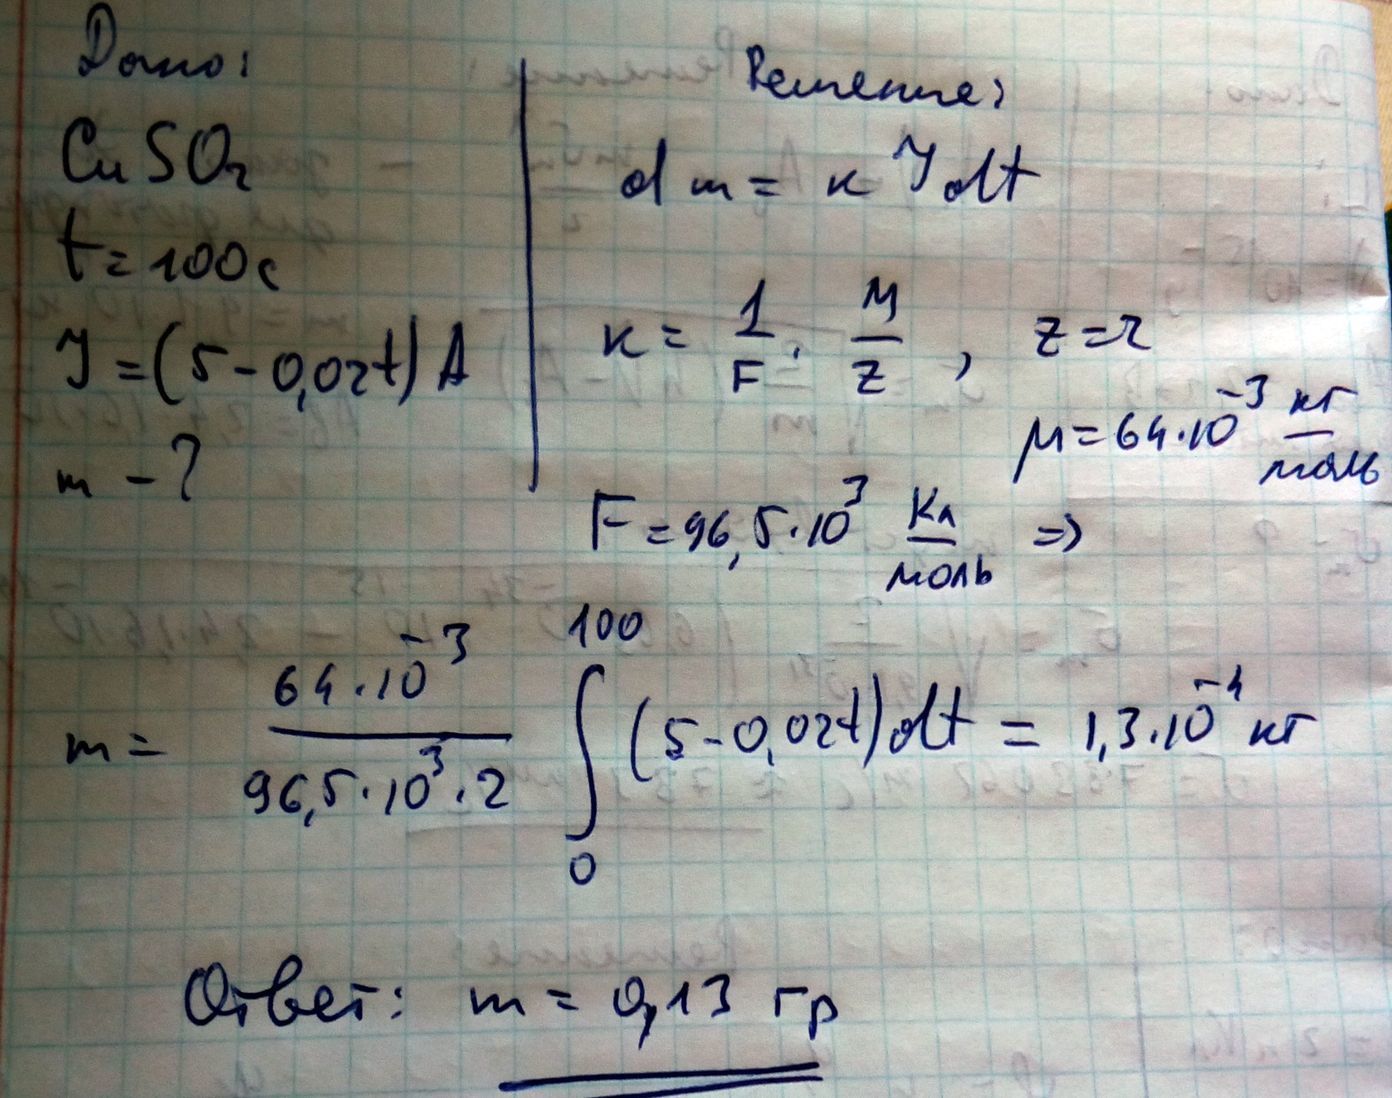 Дано:
CuSO₂
t=100с
J=(5-0,02t)A
m-?
Решение:
dm=к J dt
к= 1/F · M/z , z=2
μ=64·10⁻³ кг/моль
F=96,5·10³ Кл/моль =>
m= 64·10⁻³/96,5·10³·2 ∫₀¹⁰⁰ (5-0,02t)dt = 1,3·10⁻⁴ кг
Ответ: m= 0,13 гр